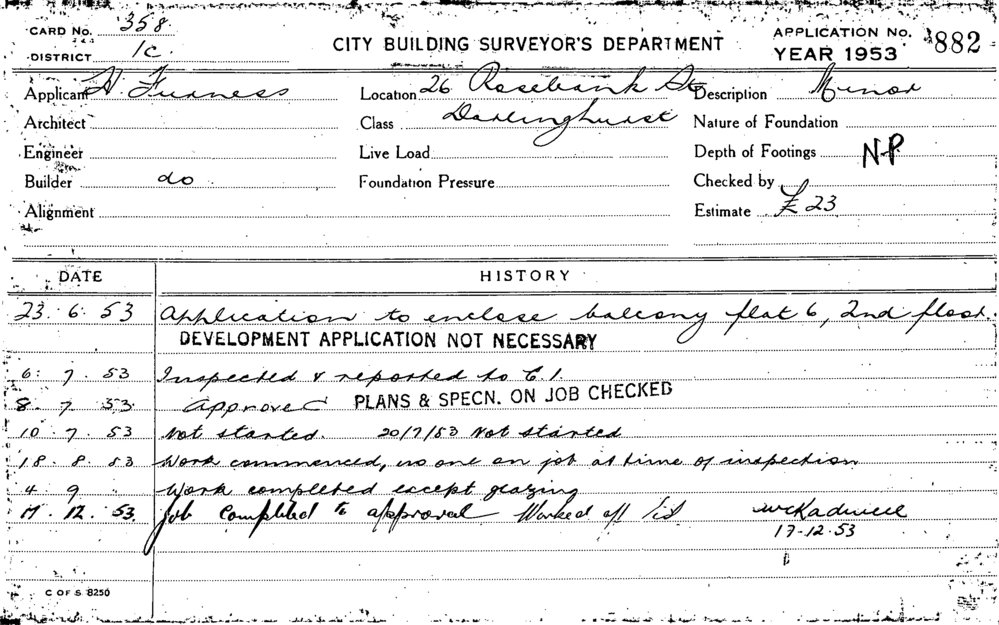 CARD No. 358
DISTRICT 1C.
CITY BUILDING SURVEYOR'S DEPARTMENT
APPLICATION No. 882
YEAR 1953
Applicant H Furness
Location 26 Rosebank St
Description Minor
Architect
Class Darlinghurst
Nature of Foundation
Engineer
Live Load
Depth of Footings N.P.
Builder do
Foundation Pressure
Checked by
Alignment
Estimate £23
DATE HISTORY
23. 6. 53 Application to enclose balcony flat 6, 2nd floor.
DEVELOPMENT APPLICATION NOT NECESSARY
6. 7. 53 Inspected & reported to C.I.
8. 7. 53 Approved PLANS & SPECN. ON JOB CHECKED
10. 7. 53 Not started. 20/7/53 Not started
18. 8. 53 Work commenced, no one on job at time of inspection
4 9 Work completed except glazing
17. 12. 53. Job Completed to approval Worked off
17-12-53
C OF S 8250